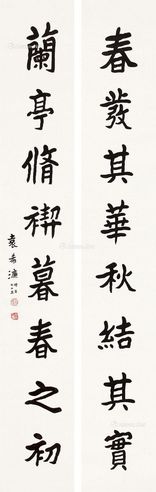 春發其華秋結其實
蘭亭脩禊暮春之初
袁希濂